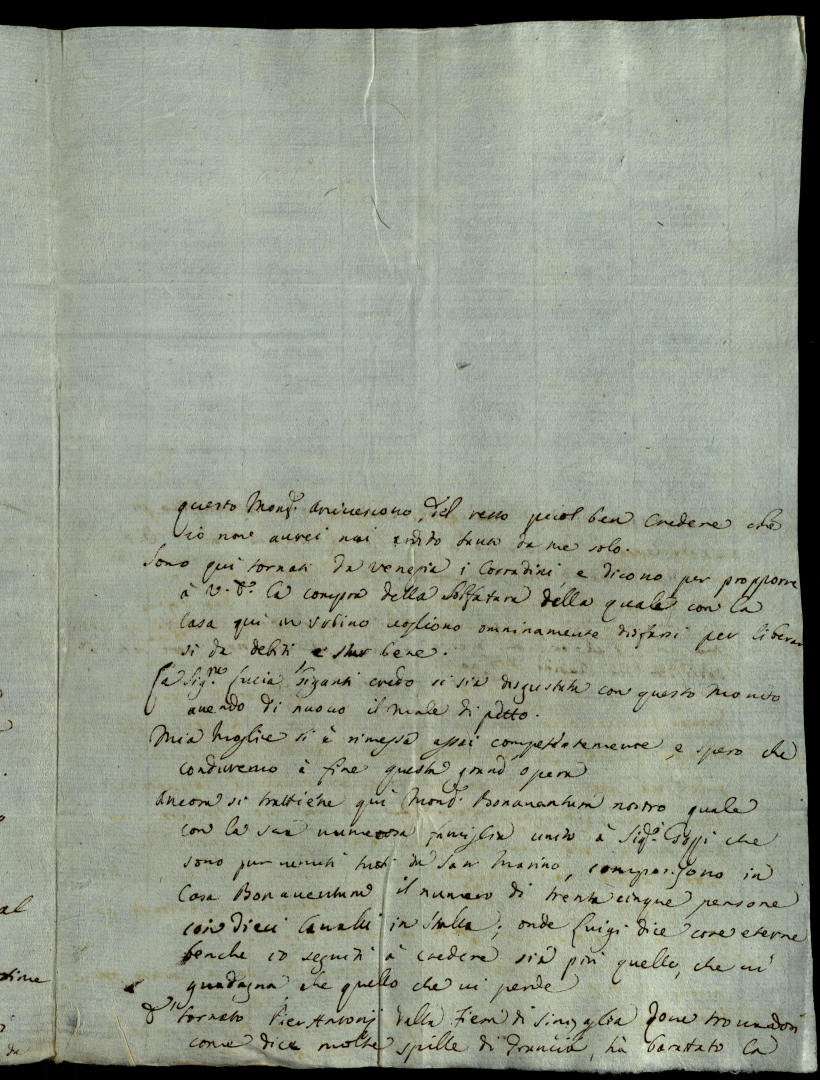 questo Mons.r Arcivescovo, del resto puol ben credere che
io non aurei mai ardito tanto da me solo.
Sono qui tornati da Venezia i Corradini, e dicono per propporre
à V. S. la compra della Solfatara della quale con la
Casa qui in Urbino vogliono omninamente disfarsi per liberar
si da debiti e star bene.
La Sig.ra Lucia Giganti credo si sia disgustata con questo Mondo
avendo di nuovo il male di petto.
Mia Moglie si è rimessa assai competentemente, e spero che
condurremo à fine questa grand'opera
Ancora si trattiene qui Mons.r Bonaventura nostro quale
con la sua numerosa famiglia unito à Sig.ri che
sono pur venuti tutti da San Marino, compongono in
Casa Bonaventura il numero di trenta cinque persone
con dieci Cavalli in stalla; onde Luigi dice cose eterne
benche io seguiti à credere sia più quello, che vi
guadagna che quello che vi perde
tornato Pier Antonj dalla Fiera di Sinigaglia dove trovandosi
come dice molte spille di Francia, hà barattato la
al